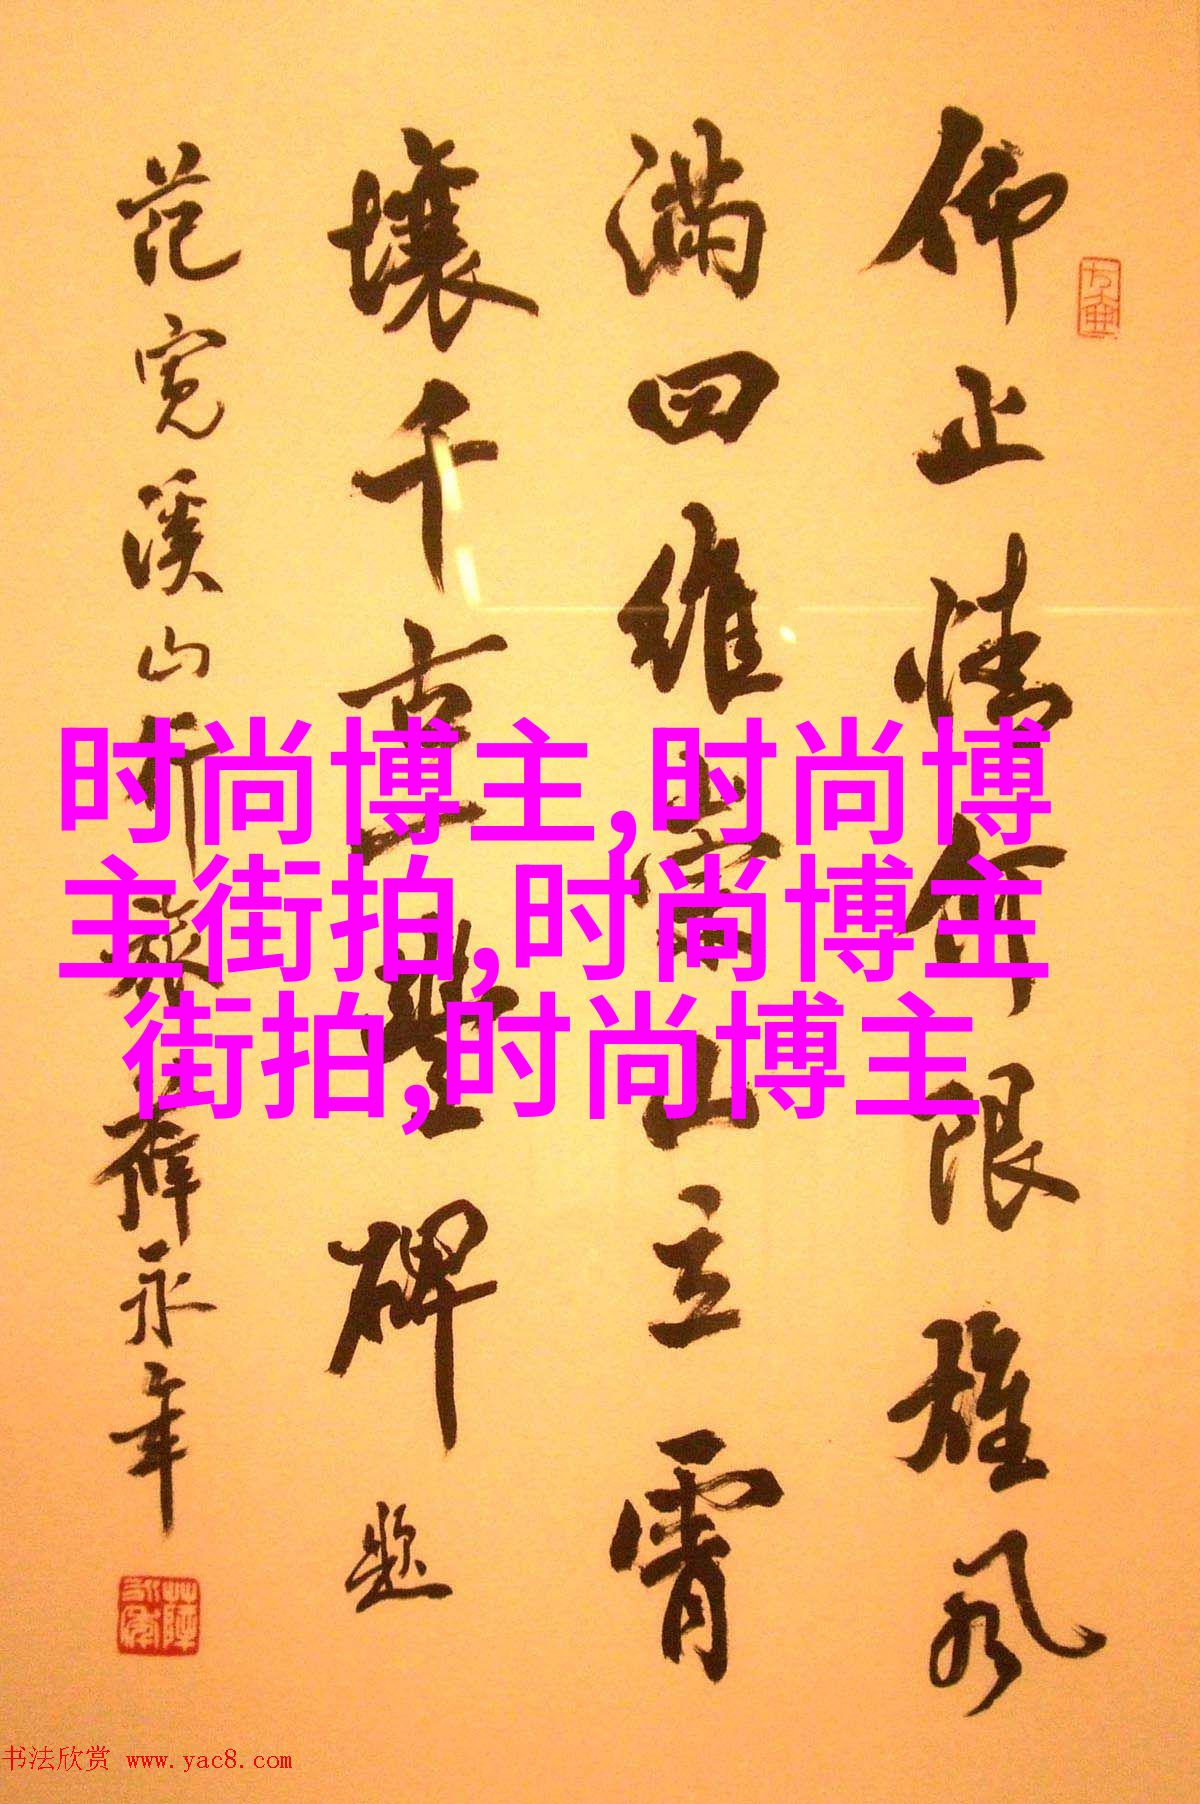 仰止情何限雄风
满四维崇山立霄
壤千古一豐碑题
范宽溪山行旅薛永年
时尚博主,时尚博
主街拍,时尚博主
街拍,时尚博主
书法欣赏 www.yac8.com